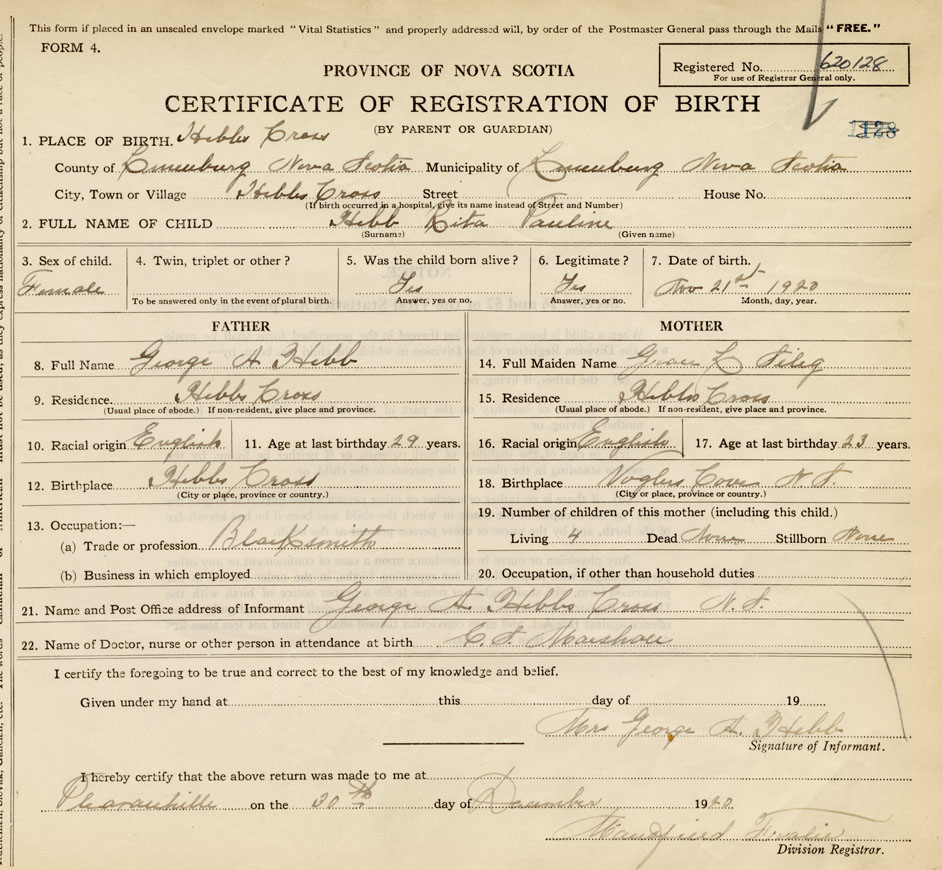 This form if placed in an unsealed envelope marked "Vital Statistics" and properly addressed will, by order of the Postmaster General pass through the Mails "FREE."
FORM 4.
Registered No. 620128
For use of Registrar General only.
PROVINCE OF NOVA SCOTIA
CERTIFICATE OF REGISTRATION OF BIRTH
(BY PARENT OR GUARDIAN)
1. PLACE OF BIRTH. Hibbs Cross
County of Lunenburg Nova Scotia Municipality of Lunenburg Nova Scotia
City, Town or Village Hibbs Cross Street House No.
(If birth occurred in a hospital, give its name instead of Street and Number)
2. FULL NAME OF CHILD Hebb Rita Pauline
(Surname) (Given name)
3. Sex of child. 4. Twin, triplet or other? 5. Was the child born alive? 6. Legitimate? 7. Date of birth.
Female Yes Yes Nov 21st 1920
To be answered only in the event of plural birth. Answer, yes or no. Answer, yes or no. Month, day, year.
FATHER
8. Full Name George A Hebb
9. Residence. Hibbs Cross
(Usual place of abode.) If non-resident, give place and province.
10. Racial origin English 11. Age at last birthday 29 years.
12. Birthplace Hibbs Cross
(City or place, province or country.)
13. Occupation:—
(a) Trade or profession Blacksmith
(b) Business in which employed
MOTHER
14. Full Maiden Name
15. Residence Hibbs Cross
(Usual place of abode.) If non-resident, give place and province.
16. Racial origin English 17. Age at last birthday 23 years.
18. Birthplace Voglers Cove N.S.
(City or place, province or country.)
19. Number of children of this mother (including this child.)
Living 4 Dead None Stillborn None
20. Occupation, if other than household duties
21. Name and Post Office address of Informant George A. Hibbs Cross N.S.
22. Name of Doctor, nurse or other person in attendance at birth C.S. Marshall
I certify the foregoing to be true and correct to the best of my knowledge and belief.
Given under my hand at this day of 19
Mrs George A. Hebb
Signature of Informant.
I hereby certify that the above return was made to me at
on the 30th day of December 1920
Division Registrar.